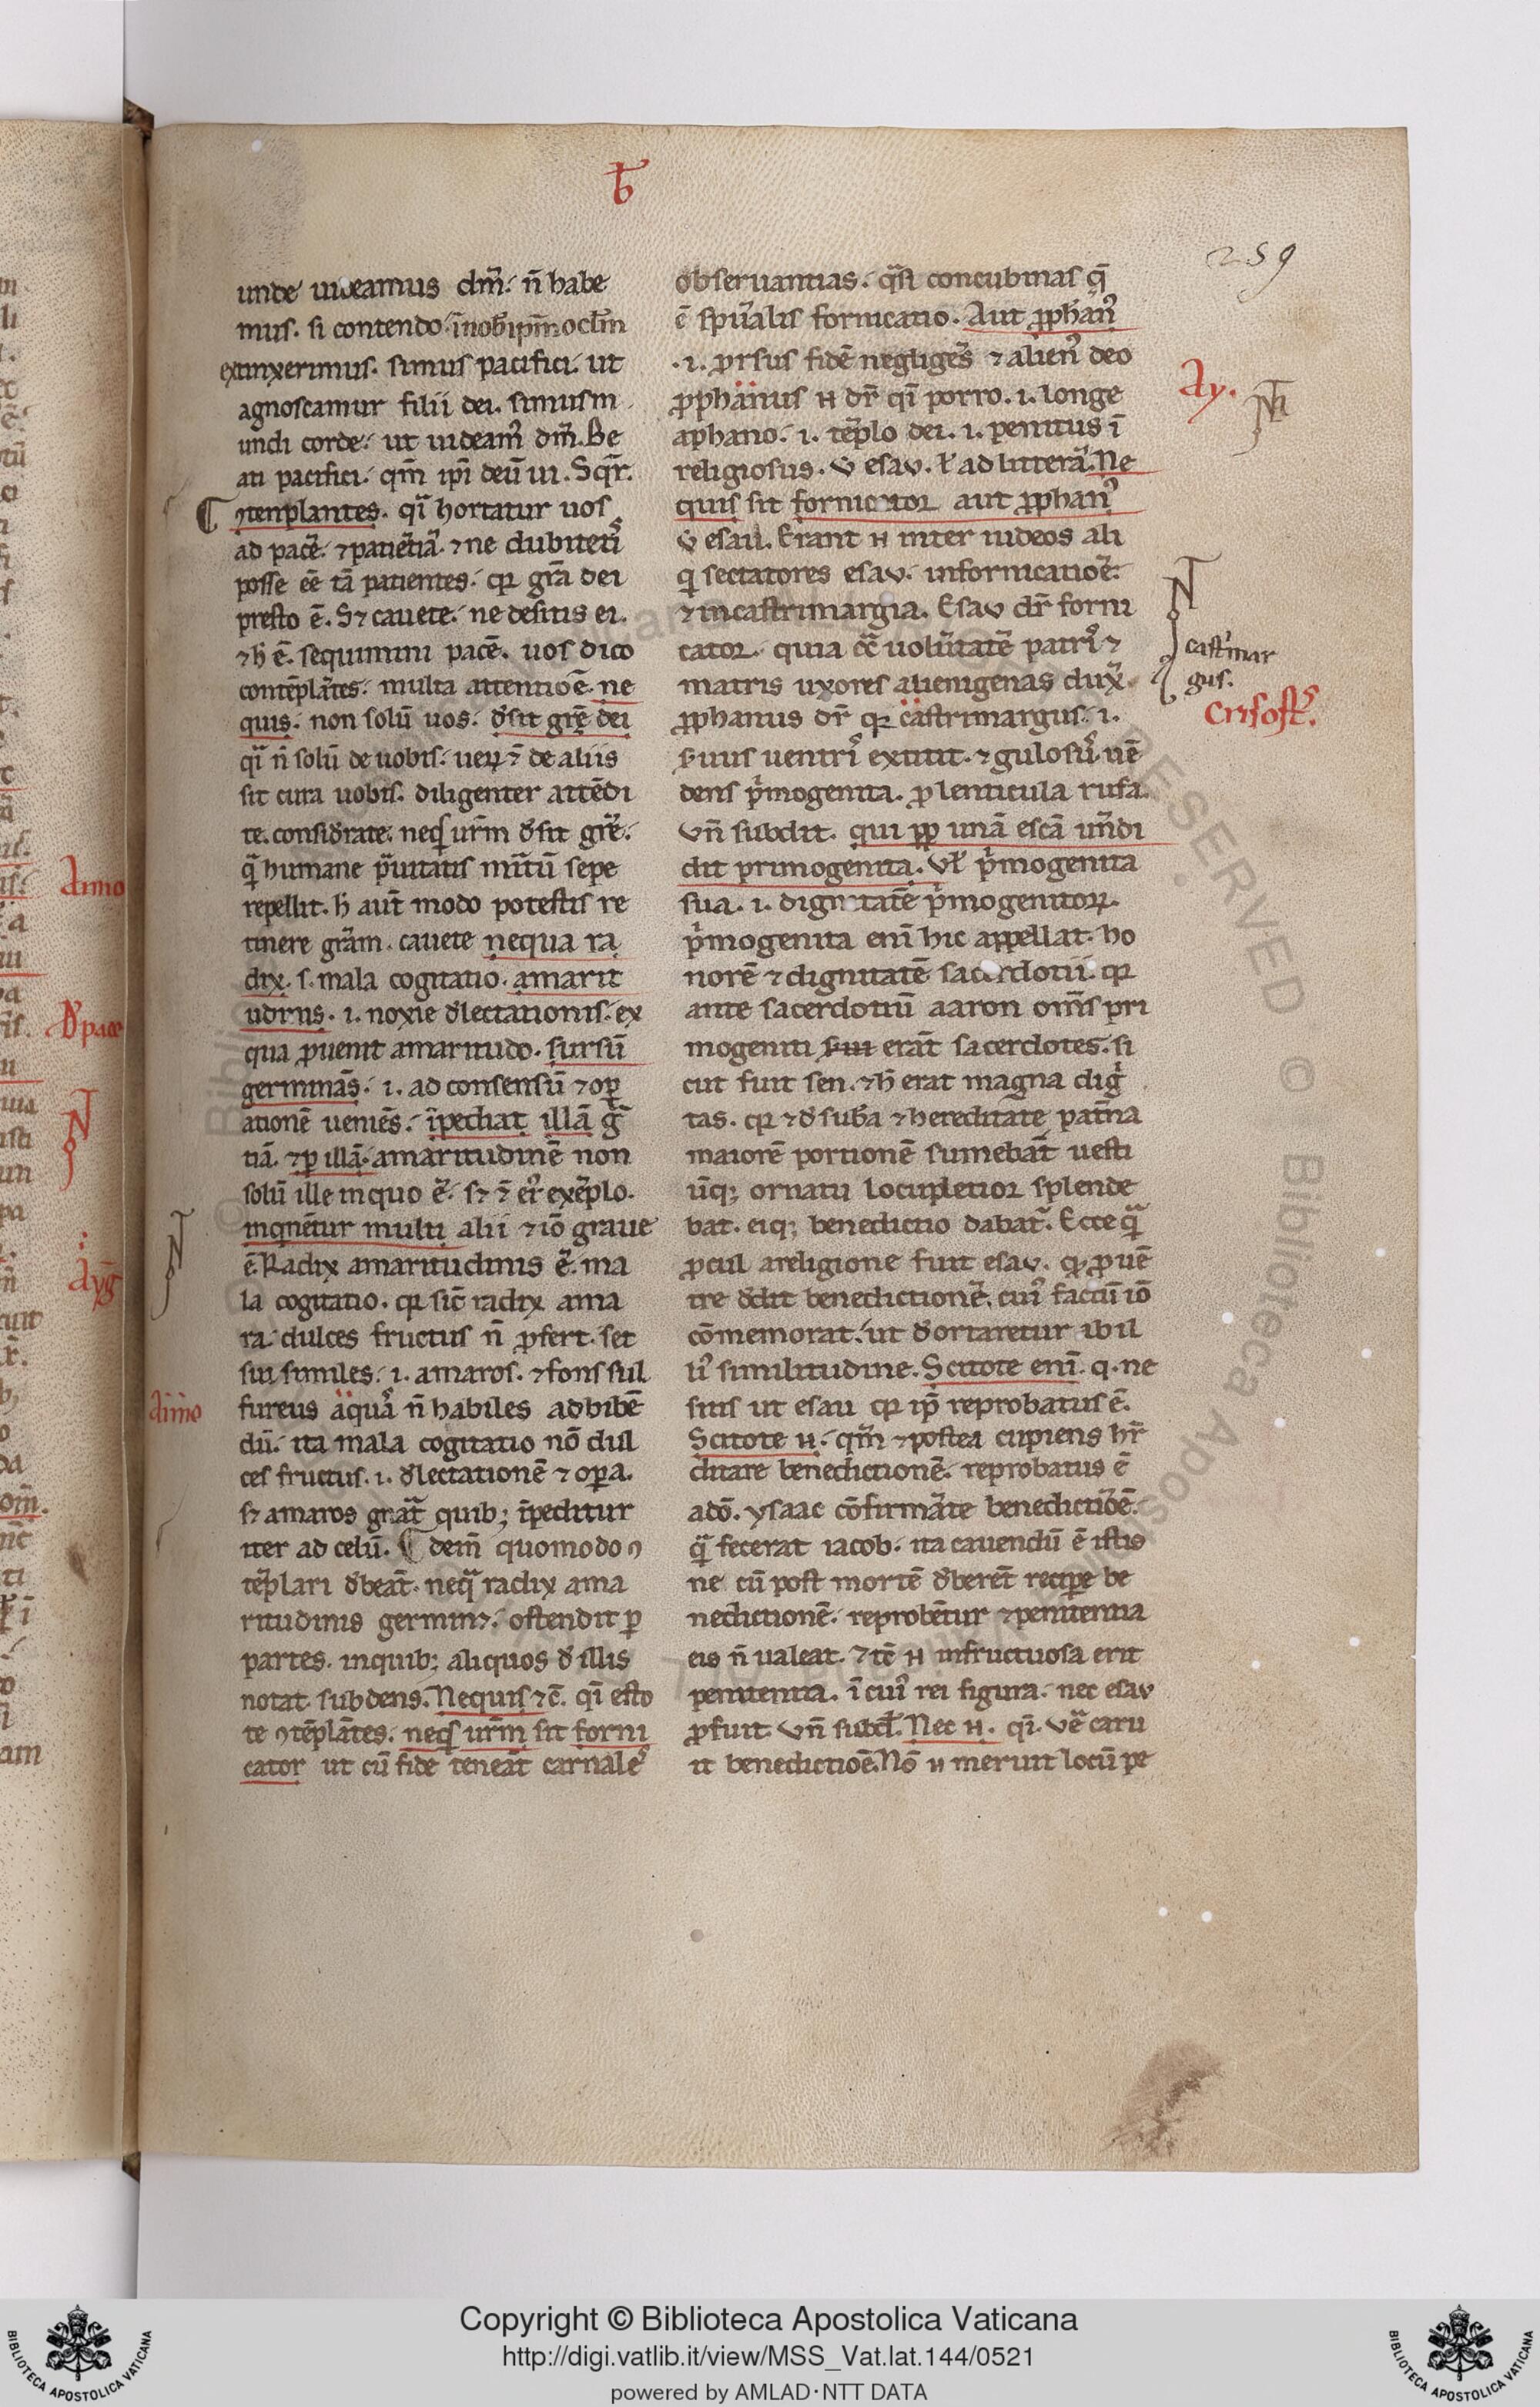 ƀ
259
unde uideamus dm̄. n̄ habe
mus. si contendo īnob̄ ip̄m ocl̄m
extinxerimus. simus pacifici. ut
agnoscamur filii dei. simus m
undi corde. ut uideam᷒ dm̄. Be
ati pacifici. qm̄ ip̄i deū ui. Sqr̄.
ꝯtenplantes. qͥ hortatur uos
ad pacē. ⁊ patiētiā. ⁊ ne dubiteti᷒
posse eē tā patientes. qꝛ grā dei
presto ē. S⁊ cauete. ne desitis ei.
⁊ h̄ ē. sequimini pacē. uos dico
contēplātes. multa attentiōe. ne
quis. non solū uos. d̄sit grē dei
qͥ n̄ solū de uobis. ueꝝ ⁊ de aliis
sit cura uobis. diligenter attēdi
te. consid̄rate. neqͥs ur̄m d̄sit grē.
q̄ humane p̄uitatis mītū sepe
repellit. h̄ aut̄ modo potestis re
tinere grām. cauete nequa ra
dix. s. mala cogitatio. amarit
udinis. i. noxie d̄lectationis. ex
qua ꝓuenit amaritudo. sursū
germinās. i. ad consensū ⁊ oꝑ
ationē ueniēs. īpediat illā g̃
tiā. ⁊ ꝑ illā. amaritudinē non
solū ille in quo ē. s⁊ ⁊ ei᷒ exēplo.
inqnētur multi alii ⁊ iō graue
ē. Radix amaritudinis ē. ma
la cogitatio. qꝛ sic̄ radix ama
ra. dulces fructus n̄ ꝓfert. set
sui similes. i. amaros. ⁊ fons sul
fureus aquā n̄ habiles ad bibē
dū. ita mala cogitatio nō dul
ces fructus. i. d̄lectationē ⁊ oꝑa.
s⁊ amaros gn̄at quib; īpeditur
iter ad celū. ¶ dem̄ quomodo ꝯ
tēplari d̄beāt. neq̄ radix ama
ritudinis germin⁊. ostendit ꝑ
partes. in quib; aliquos d̄ illis
notat subdens. Nequis ⁊c̄. qͥ esto
te ꝯtēplātes. neqͥs ur̄m sit forni
cator ut cū fide teneāt carnale᷒
obseruantias. qͣsi concubinas q̄
ē spūalis fornicatio. Aut ꝓphan᷒
.i. ꝓrsus fidē negligēs ⁊ alien᷒ deo
ꝓphanus n̄ dr̄ qͥ porro. i. longe
a phano. i. tēplo dei. i. penitus ī
religiosus. ū esau. ł ad litterā. Ne
quis sit fornicator aut ꝓphan᷒
ū esau. Erant n̄ inter iudeos ali
qͥ sectatores esau. in fornicatiōe.
⁊ in castrimargia. Esau dr̄ forni
cator. quia cc̄ uolūtatē patri᷒ ⁊
matris uxores alienigenas dux̄.
ꝓphanus dr̄ qꝛ castrimargus. i.
s̄uus uentri᷒ extitit. ⁊ gulosu᷒. uē
dens pͥmogenita. ꝓ lenticula rufa.
Vn̄ subdit. qui ꝓp unā escā uēdi
dit primogenita. Vł pͥmogenita
sua. i. dignitatē pͥmogenitoꝝ.
pͥmogenita enī hic appellat. ho
norē ⁊ dignitatē sacerdotii. qꝛ
ante sacerdotiū aaron om̄s pri
mogeniti erāt sacerdotes. si
cut fuit sen. ⁊ h̄ erat magna digͥ
tas. qꝛ ⁊ d̄ subā ⁊ hereditate pat̄na
maiorē portionē sumebāt uesti
ūq; ornatu locupletior splende
bat. eiq; benedictio dabat̄. Ecce qͣ
ꝓcul a religione fuit esau. qꝛ ꝓ uē
tre d̄dit benedictionē. cui᷒ factū iō
cōmemorat. ut d̄ortaretur ab il
li᷒ similitudine. Scitote enī. q. ne
sitis ut esau qꝛ ip̄e reprobatus ē.
Scitote n̄. qm̄ ⁊ postea cupiens hr̄
ditare benedictionē. reprobatus ē
a dō. ysaac cōfirmāte benedictiōē.
q̄ fecerat iacob. ita cauendū ē istis
ne cū post mortē d̄berēt reciꝑe be
nedictionē. reprobētur ⁊ penitentia
eis n̄ ualeat. ⁊ tē n̄ infructuosa erit
penitentia. ī cui᷒ rei figura. nec esau
ꝓfuit. Vn̄ subd̄. Nec n̄. qͥ. Vē caru
it benedictiōe. Nō n̄ meruit locū pe
Ay.
castͥmar
gus.
Crisosť.
Aimo
Aimo
D̄ pace
Ayḡ
Copyright © Biblioteca Apostolica Vaticana
http://digi.vatlib.it/view/MSS_Vat.lat.144/0521
powered by AMLAD·NTT DATA
BIBLIOTECA APOSTOLICA VATICANA
BIBLIOTECA APOSTOLICA VATICANA